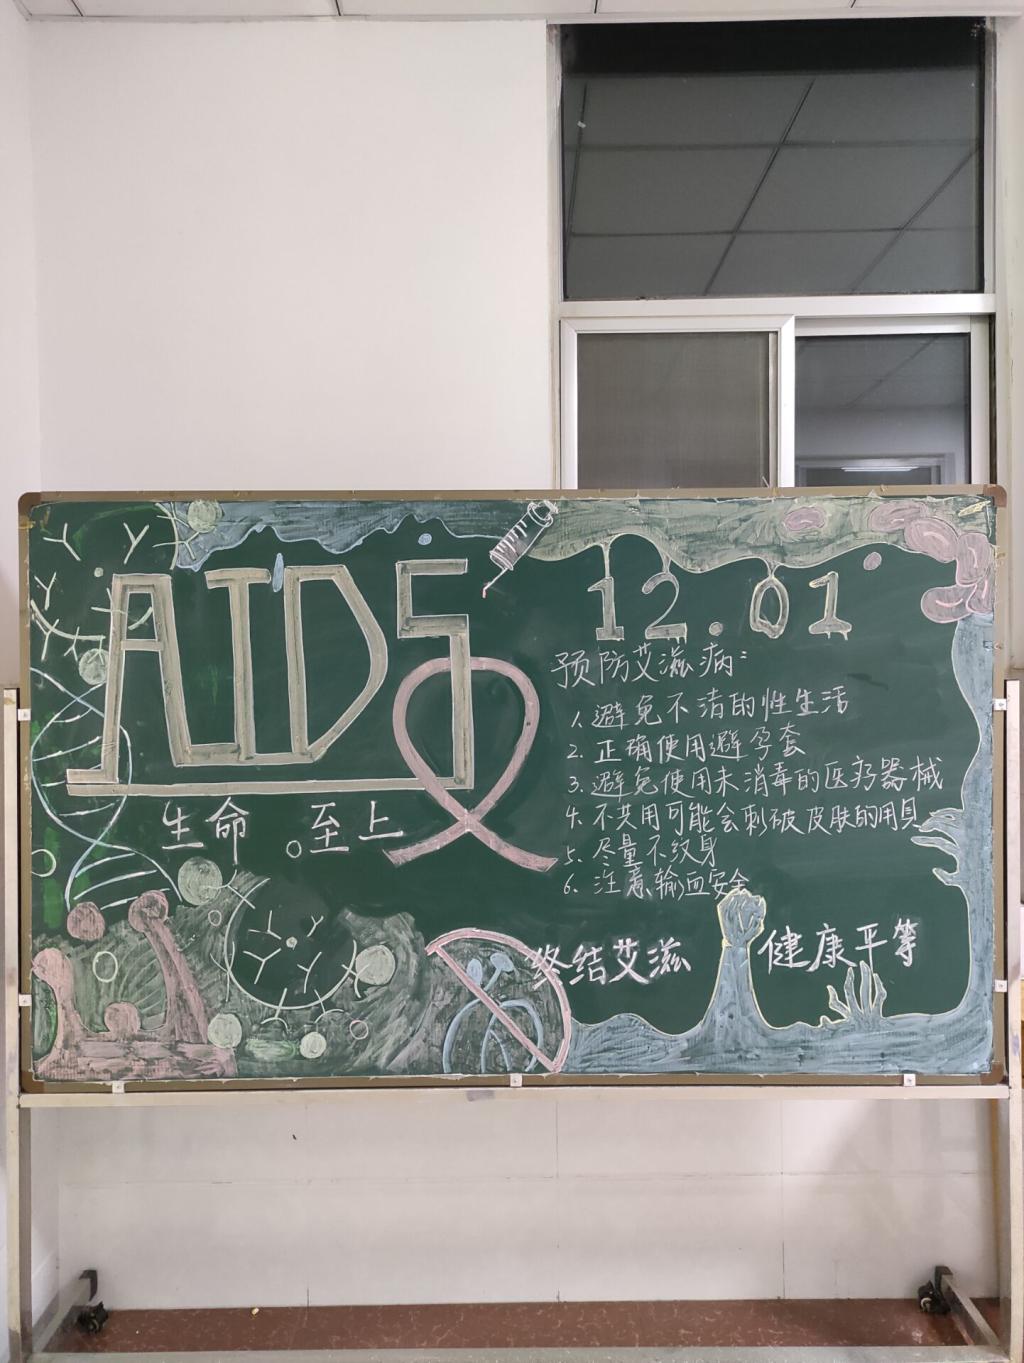 AIDS
生命。至上
12.01
预防艾滋病:
1.避免不洁的性生活
2.正确使用避孕套
3.避免使用未消毒的医疗器械
4.不共用可能会刺破皮肤的用具
5.尽量不纹身
6.注意输血安全
终结艾滋 健康平等